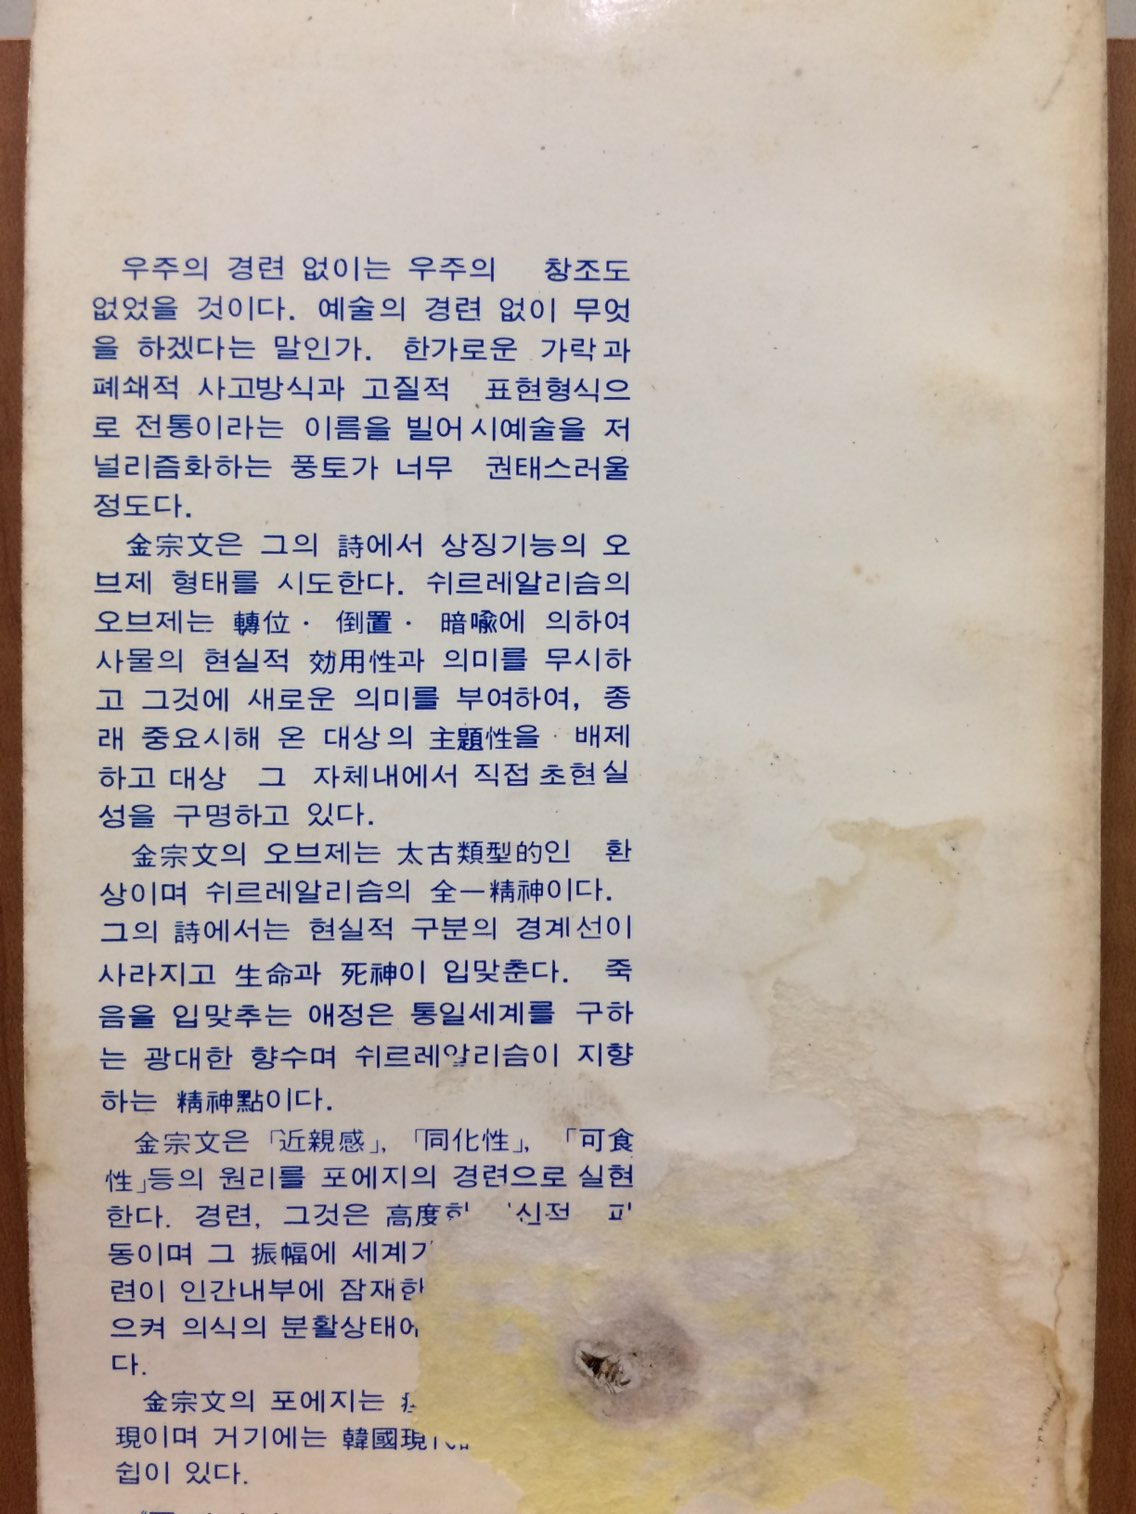 우주의 경련 없이는 우주의 창조도
없었을 것이다. 예술의 경련 없이 무엇
을 하겠다는 말인가. 한가로운 가락과
폐쇄적 사고방식과 고질적 표현형식으
로 전통이라는 이름을 빌어 시예술을 저
널리즘화하는 풍토가 너무 권태스러울
정도다.
金宗文은 그의 詩에서 상징기능의 오
브제 형태를 시도한다. 쉬르레알리슴의
오브제는 轉位· 倒置· 暗喩에 의하여
사물의 현실적 効用性과 의미를 무시하
고 그것에 새로운 의미를 부여하여, 종
래 중요시해 온 대상의 主題性을 배제
하고 대상 그 자체내에서 직접 초현실
성을 구명하고 있다.
金宗文의 오브제는 太古類型的인 환
상이며 쉬르레알리슴의 全一精神이다.
그의 詩에서는 현실적 구분의 경계선이
사라지고 生命과 死神이 입맞춘다. 죽
음을 입맞추는 애정은 통일세계를 구하
는 광대한 향수며 쉬르레알리슴이 지향
하는 精神點이다.
金宗文은 「近親感」, 「同化性」, 「可食
性」등의 원리를 포에지의 경련으로 실현
한다. 경련, 그것은 高度한
동이며 그 振幅에 세계가
련이 인간내부에 잠재한
으켜 의식의 분활상태에
다.
金宗文의 포에지는
現이며 거기에는 韓國現代
쉽이 있다.